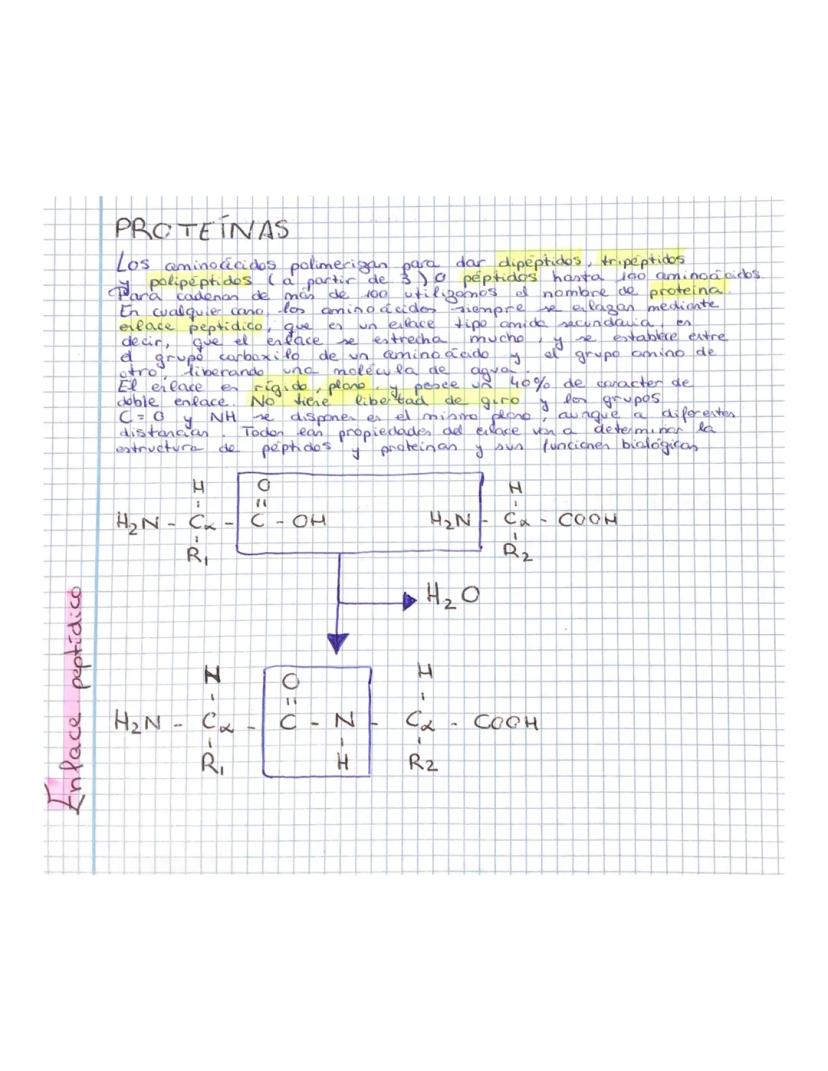 PROTEÍNAS
Los aminoácidos polimerizan para dar dipéptidos, tripéptidos
y polipéptidos (a partir de 3) o péptidos hasta 100 aminoácidos.
Para cadenas de más de 100 utilizamos el nombre de proteína.
En cualquier caso, los aminoácidos siempre se enlazan mediante
enlace peptídico, que es un enlace tipo amida secundaria, es
decir, que el enlace se estrecha mucho, y se establece entre
el grupo carboxilo de un aminoácido y el grupo amino de
otro, liberando una molécula de agua.
El enlace es rígido, plano, y posee un 40% de caracter de
doble enlace. No tiene libertad de giro y los grupos
C=O y NH se disponen en el mismo plano, aunque a diferentes
distancias. Todas esas propiedades del enlace van a determinar la
estructura de péptidos y proteínas y sus funciones biológicas
H O H
H₂N - Cα - C - OH H₂N - Cα - COOH
R₁ R₂
H₂O
Enlace peptídico
H O H
H₂N - Cα - C - N - Cα - COOH
R₁ H R₂